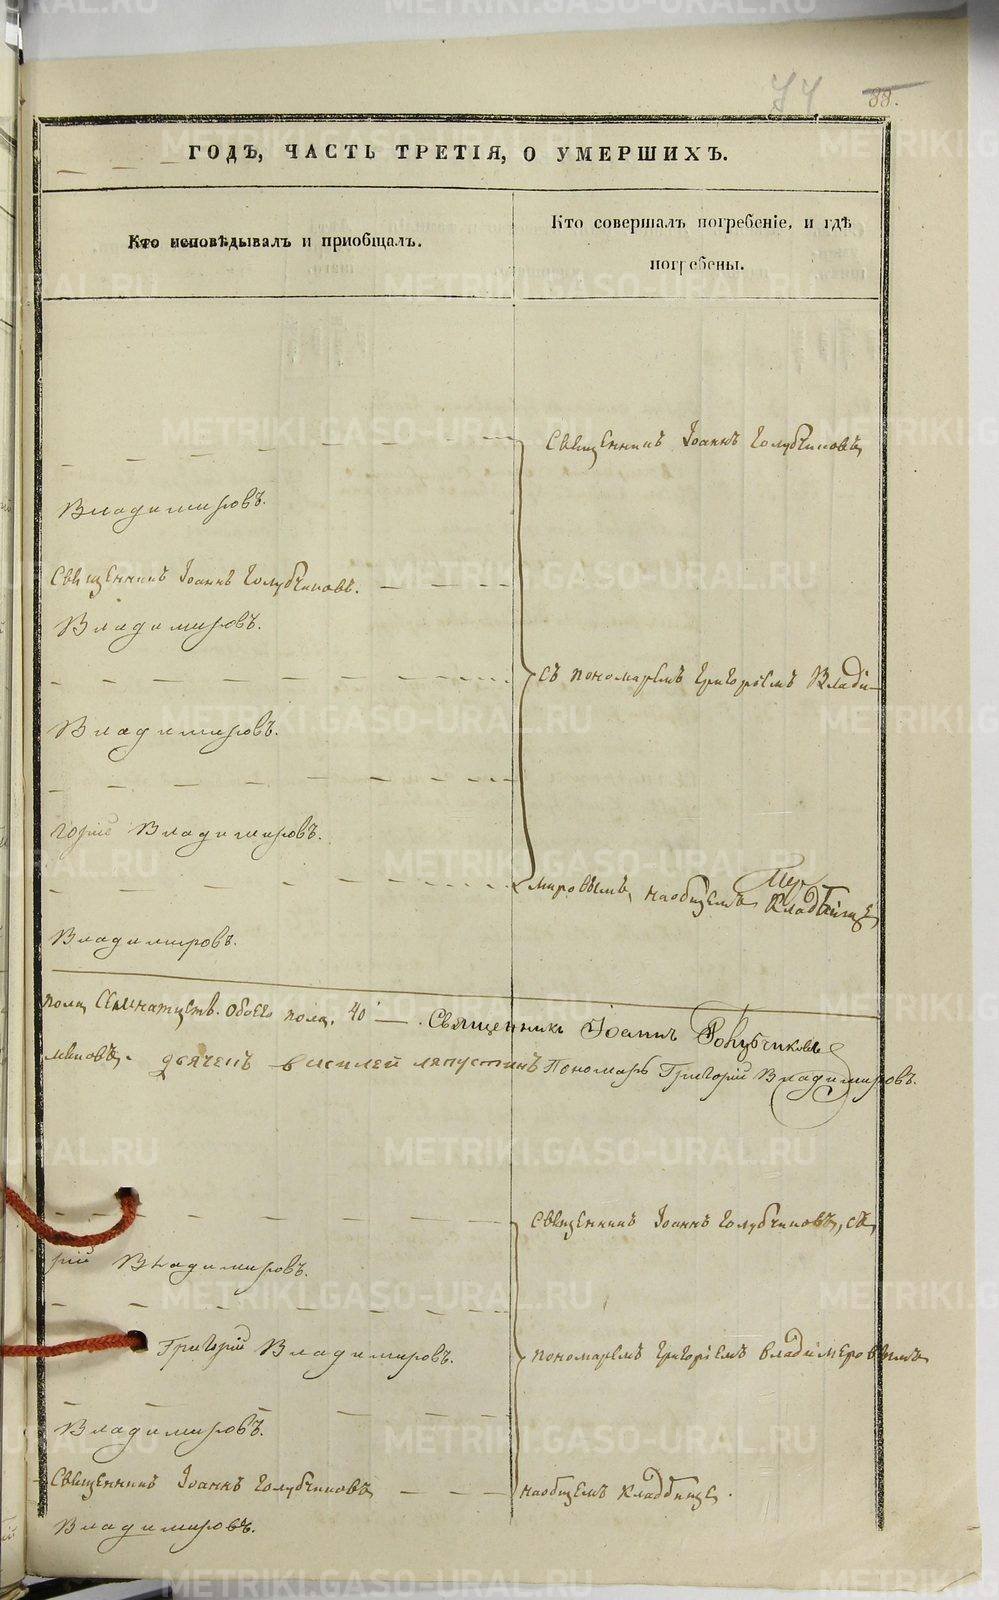 74 88.
ГОДЪ, ЧАСТЬ ТРЕТІЯ, О УМЕРШИХЪ.
Кто исповѣдывалъ и пріобщалъ.
Кто совершалъ погребеніе, и гдѣ
погребены.
Священникъ Іоаннъ Голубчиковъ
Владимировъ.
Священникъ Іоаннъ Голубчиковъ.
Владимировъ.
съ пономаремъ Григоріемъ Влади-
Владимировъ.
горій Владимировъ.
мировымъ, на общемъ Кладбищѣ
Владимировъ.
пола обоего пола, 40 — . Священникъ Іоаннъ Голубчиковъ
дьячекъ Василей Ляпустинъ Пономарь Григорій Владимировъ.
Священникъ Іоаннъ Голубчиковъ, съ
рій Владимировъ.
Григорій Владимировъ.
пономаремъ Григоріемъ Владимеровымъ
Владимировъ.
Священникъ Іоаннъ Голубчиковъ
на общемъ кладбище.
Владимировъ.
METRIKI.GASO-URAL.RU